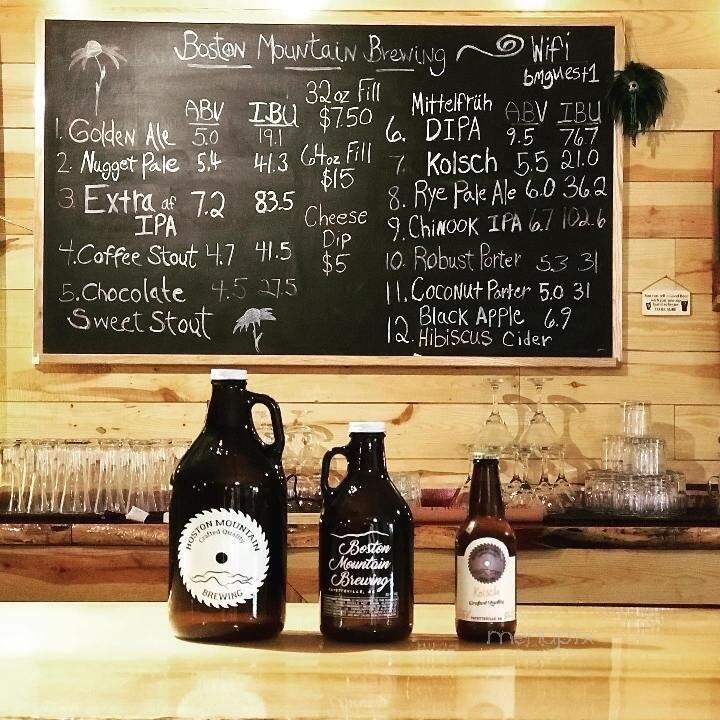 Boston Mountain Brewing
Wifi
bmguest1
ABV IBU
1. Golden Ale 5.0 19.1
2. Nugget Pale 5.4 41.3
3. Extra af 7.2 83.5
IPA
4. Coffee Stout 4.7 41.5
5. Chocolate 4.5 27.5
Sweet Stout
32oz Fill
$7.50
64oz Fill
$15
Cheese
Dip
$5
Mittelfrüh ABV IBU
6. DIPA 9.5 76.7
7. Kolsch 5.5 21.0
8. Rye Pale Ale 6.0 36.2
9. Chinook IPA 6.7 102.6
10. Robust Porter 5.3 31
11. Coconut Porter 5.0 31
12. Black Apple 6.9
Hibiscus Cider
Crafted Quality
BREWING
Boston
Mountain
Brewing
FAYETTEVILLE, AR
Kolsch
Crafted Quality
FAYETTEVILLE, AR